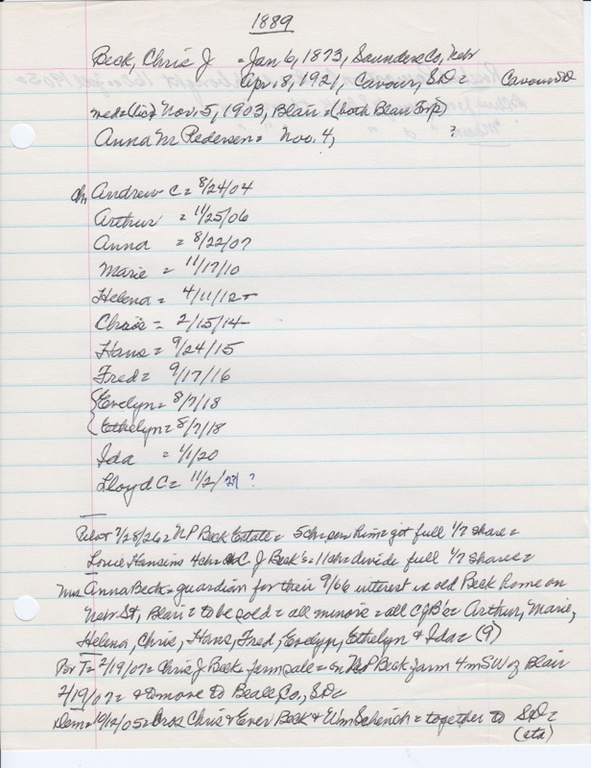 1889
Beck, Chris J = Jan 6, 1873, Saunders Co, Nebr
Apr. 8, 1921, Cavour, S.D. Cavour SD
med = (lic) Nov. 5, 1903, Blair = (both Blair Twp)
Anna M Pedersen = Nov. 4, ?
ch, Andrew C = 8/24/04
Arthur = 11/25/06
Anna = 8/22/07
Marie = 11/17/10
Helena = 4/11/12
Chris = 2/15/14
Hans = 9/24/15
Fred = 9/17/16
Evelyn = 8/7/18
Ethelyn = 8/7/18
Ida = 1/1/20
Lloyd C = 11/2/21 ?
Pilot 7/28/26 = NP Beck Estate = 5 ch = got full 1/7 share =
Louie Hansens 4 ch = C J Beck's = 11 ch = divide full 1/7 shares =
Mrs Anna Beck = guardian for their 9/66 interest in old Beck home on
Nebr St, Blair = to be sold = all minors = all CJB's = Arthur, Marie,
Helena, Chris, Hans, Fred, Evelyn, Ethelyn & Ida = (9)
2/19/07 = Chris J Beck = farm sale = on NP Beck farm 4 m SW of Blair
2/19/07 = & to move to Beadle Co, S.D. =
Dem = 10/12/05 = Bros Chris & Ever Beck & Wm = together to SD =
(etx)